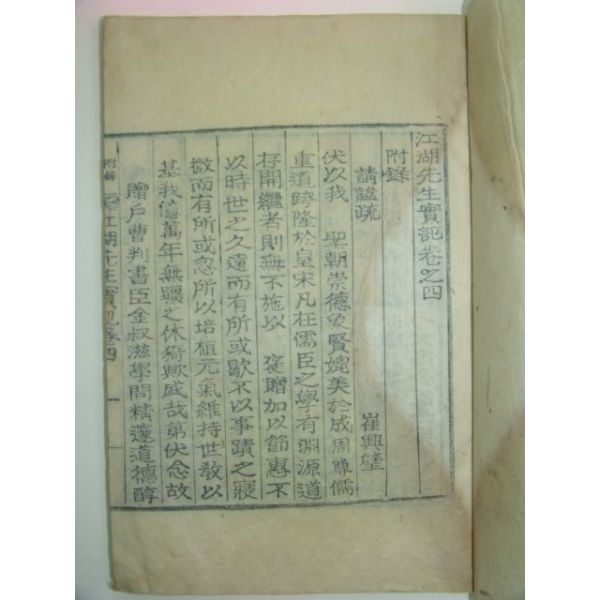 江湖先生實記卷之四
附錄
請諡疏 崔興璧
伏以我 聖朝崇德象賢媲美於成周尊儒
重道睦隆於皇宋凡在儒臣之學有淵源道
存開繼者則無不施以 褒贈加以節惠不
以時世之久遠而有所或歇不以事蹟之寢
微而有所或忽所以培植元氣維持世敎以
基我億萬年無疆之休猗歟盛哉第伏念故
贈戶曹判書臣金叔滋學問精邃道德醇
附錄 江湖先生實記卷四 一